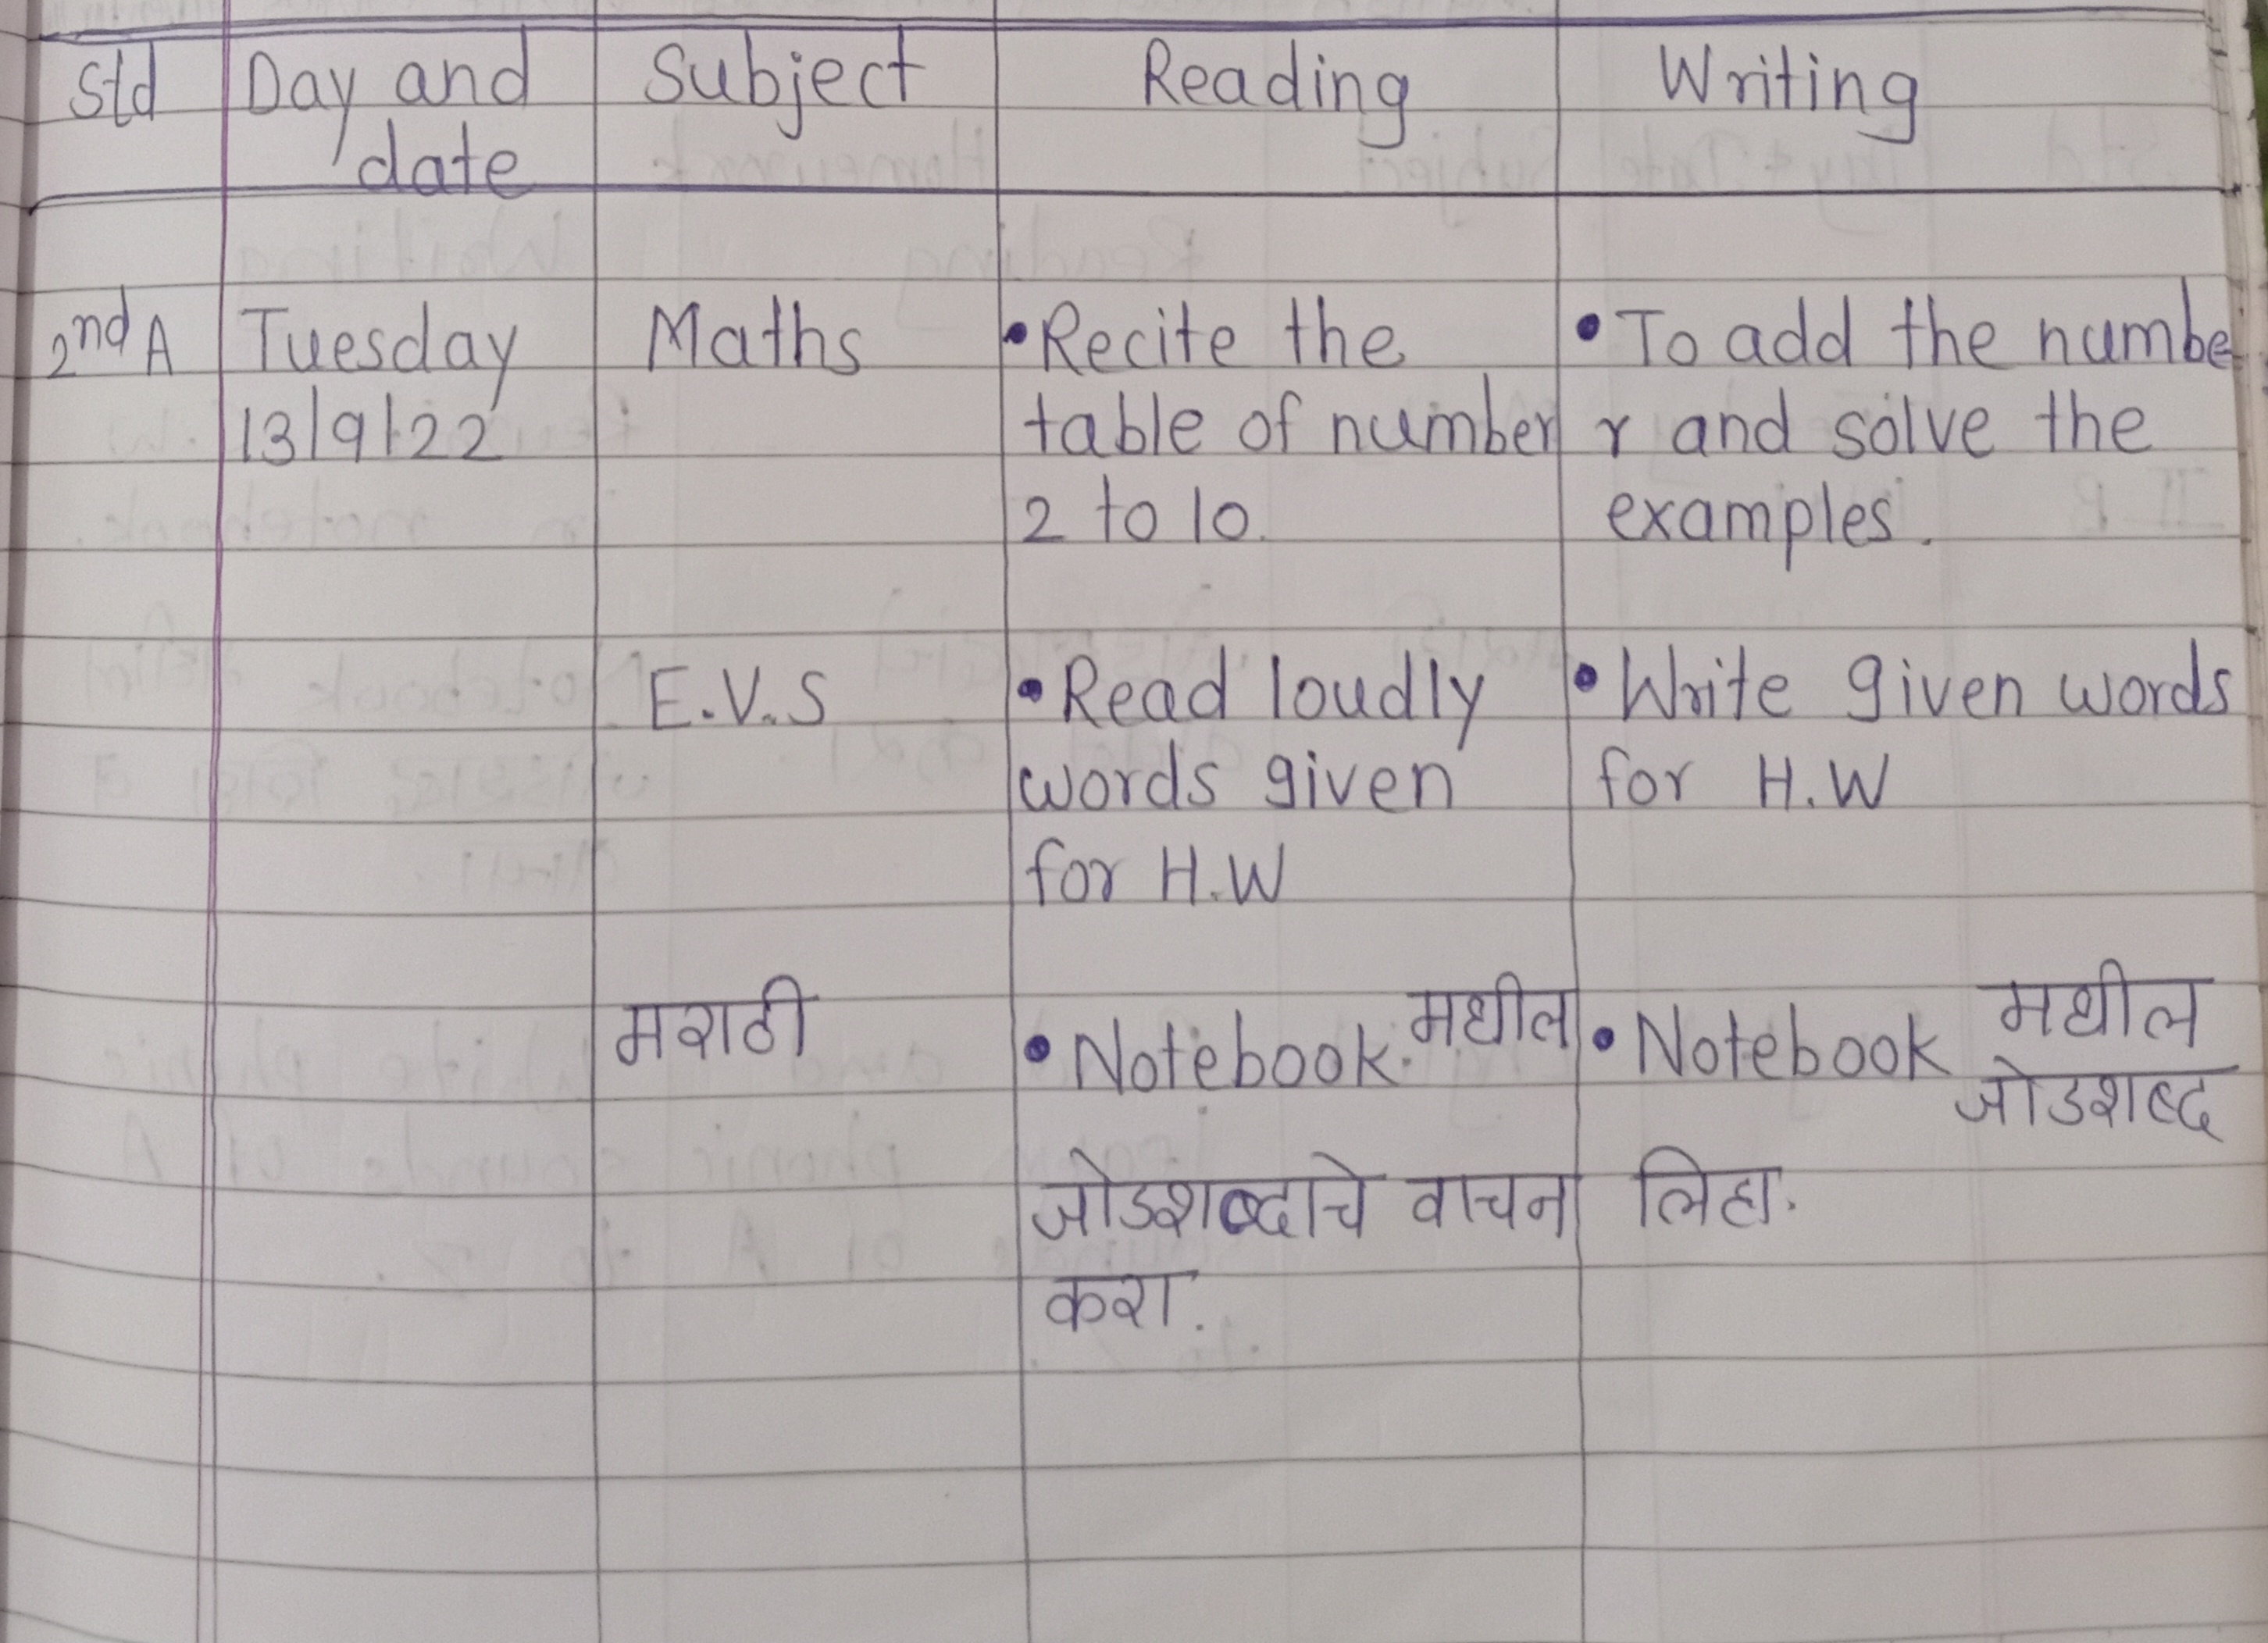 Std Day and date Subject Reading Writing
2nd A Tuesday 13/9/22 Maths
• Recite the
table of number
2 to 10.
• To add the numbe
r and solve the
examples.
E.V.S
• Read loudly
words given
for H.W
• Write given words
for H.W
मराठी
• Notebook. मधील
जोडशब्दाचे वाचन
करा.
• Notebook मधील
जोडशब्द
लिहा.